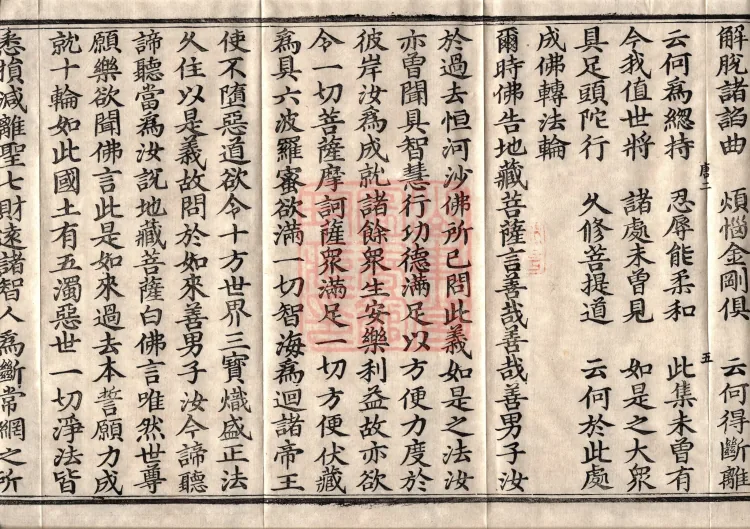 解脫諸諂曲 煩惱金剛俱 云何得斷離
唐二 五
云何爲緫持 忍辱能柔和 此集未曾有
今我值世將 諸處未曾見 如是之大衆
具足頭陀行 久修菩提道 云何於此處
成佛轉法輪
爾時佛告地藏菩薩言善哉善哉善男子汝
於過去恒河沙佛所已問此義如是之法汝
亦曾聞具智慧行功德滿足以方便力度於
彼岸汝爲成就諸餘衆生安樂利益故亦欲
令一切菩薩摩訶薩衆滿足一切方便伏藏
爲具六波羅蜜欲滿一切智海爲迴諸帝王
使不墮惡道欲令十方世界三寶熾盛正法
久住以是義故問於如來善男子汝今諦聽
諦聽當爲汝說地藏菩薩白佛言唯然世尊
願樂欲聞佛言此是如來過去本誓願力成
就十輪如此國土有五濁惡世一切淨法皆
悉損減離聖七財遠諸智人爲斷常網之所